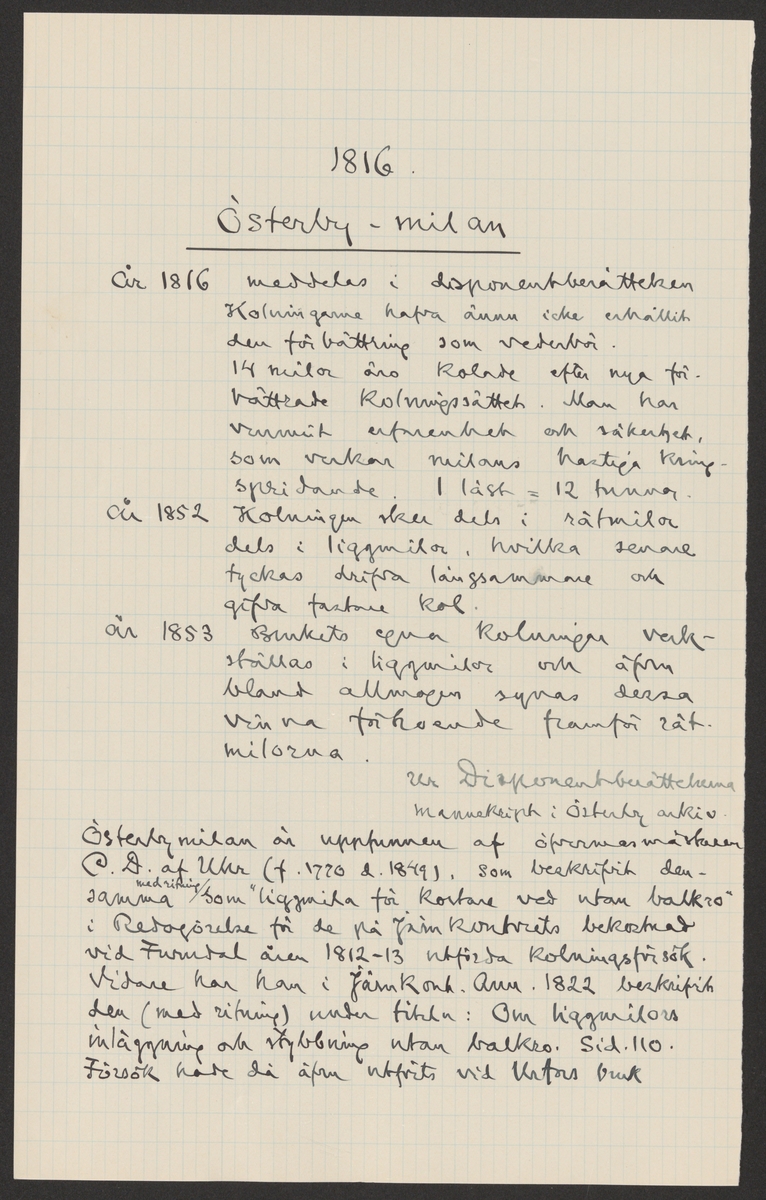 1816.
Österby-milan
År 1816 meddelas i disponentberättelsen
Kolningarne hafva ännu icke erhållit
den förbättring som vederbör.
14 milor äro kolade efter nya för-
bättrade kolningssättet. Man har
vunnit erfarenhet och säkerhet,
som verkar milans hastiga kring-
spridande. 1 läst = 12 tunnor.
År 1852 Kolningen sker dels i rätmilor
dels i liggmilor, hvilka senare
tyckas drifva långsammare och
gifva fastare kol.
År 1853 Brukets egna kolningar verk-
ställas i liggmilor och äfven
bland allmogen synas dessa
vinna förtroende framför rät-
milorna.
ur Disponentberättelserna
manuskript i Österby arkiv.
Österbymilan är uppfunnen af öfvermasmästaren
C. D. af Uhr (f. 1770 d. 1849), som beskrifvit den-
samma med ritning/som "liggmila för kortare ved utan balkro"
i Redogörelse för de på Järnkontorets bekostnad
vid Furudal åren 1812-13 utförda kolningsförsök.
Vidare har han i Järnkont. Ann. 1822 beskrifvit
den (med ritning) under titeln: Om liggmilors
inläggning och stybbning utan balkro. Sid. 110.
Försök hade då äfven utförts vid bruk